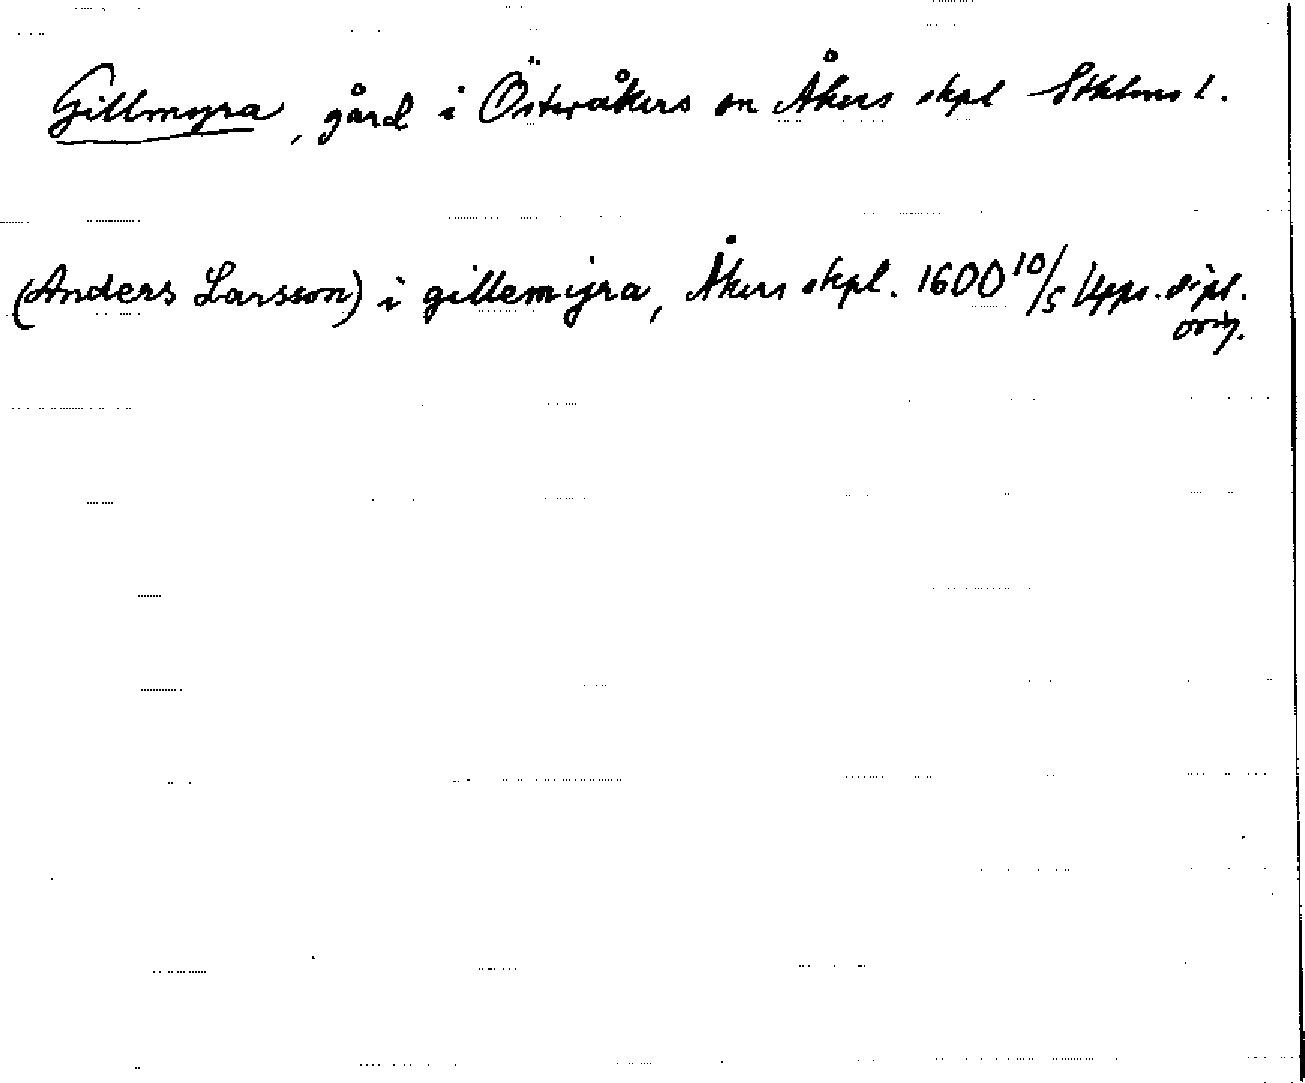 Gillmyra, gård i Österåkers sn Åkers skpl Sthlms l.
(Anders Larsson) i gillemijra, Åkers skpl. 1600 10/5 Upps. dipl.
orig.